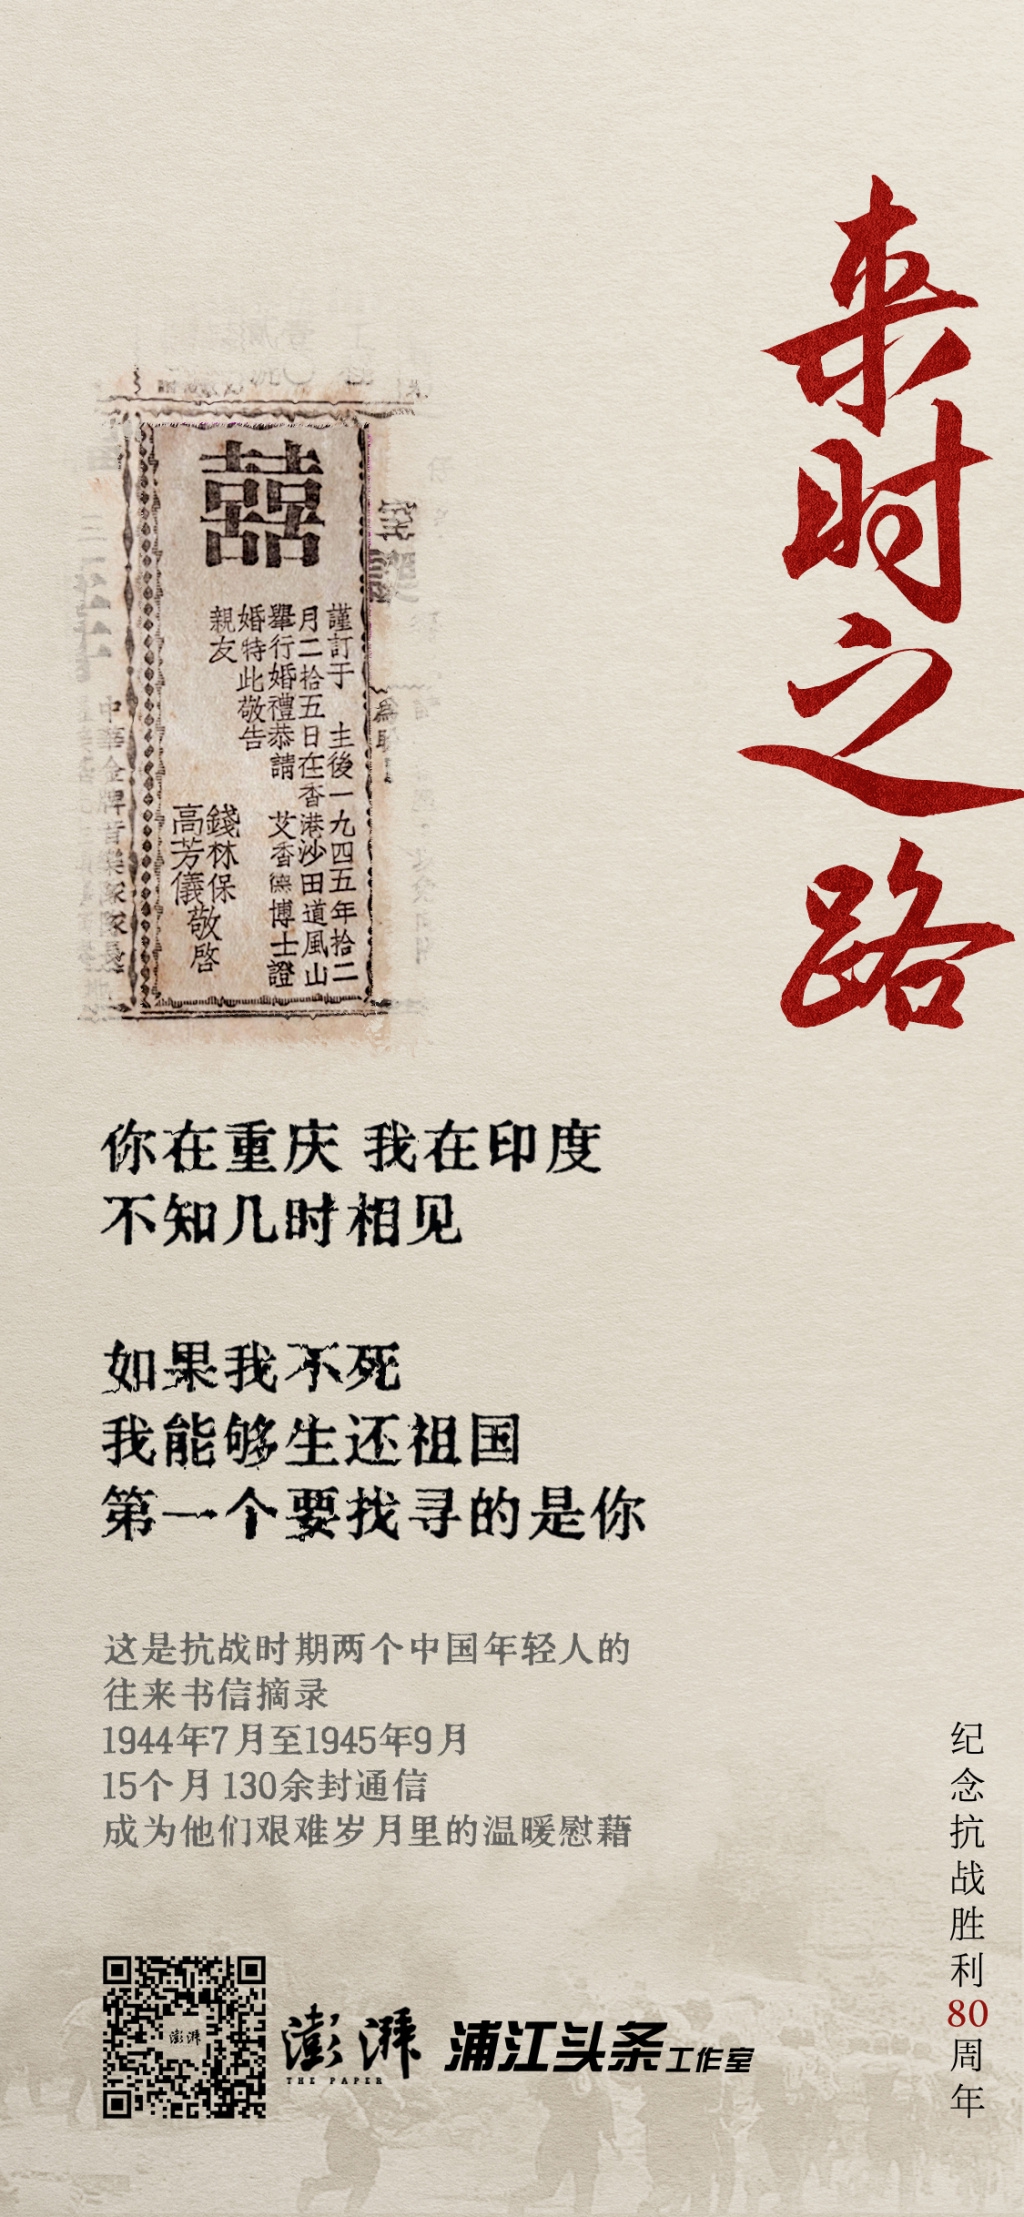 来时之路
囍
謹訂于 主後一九四五年拾二
月二拾五日在香港沙田道風山
舉行婚禮恭請 艾香德博士證
婚特此敬告
親友
錢林保
高芳儀 敬啓
中華金牌音樂隊隊長
你在重庆 我在印度
不知几时相见
如果我不死
我能够生还祖国
第一个要找寻的是你
这是抗战时期两个中国年轻人的
往来书信摘录
1944年7月至1945年9月
15个月 130余封通信
成为他们艰难岁月里的温暖慰藉
纪念抗战胜利80周年
澎湃
澎湃
THE PAPER
浦江头条工作室